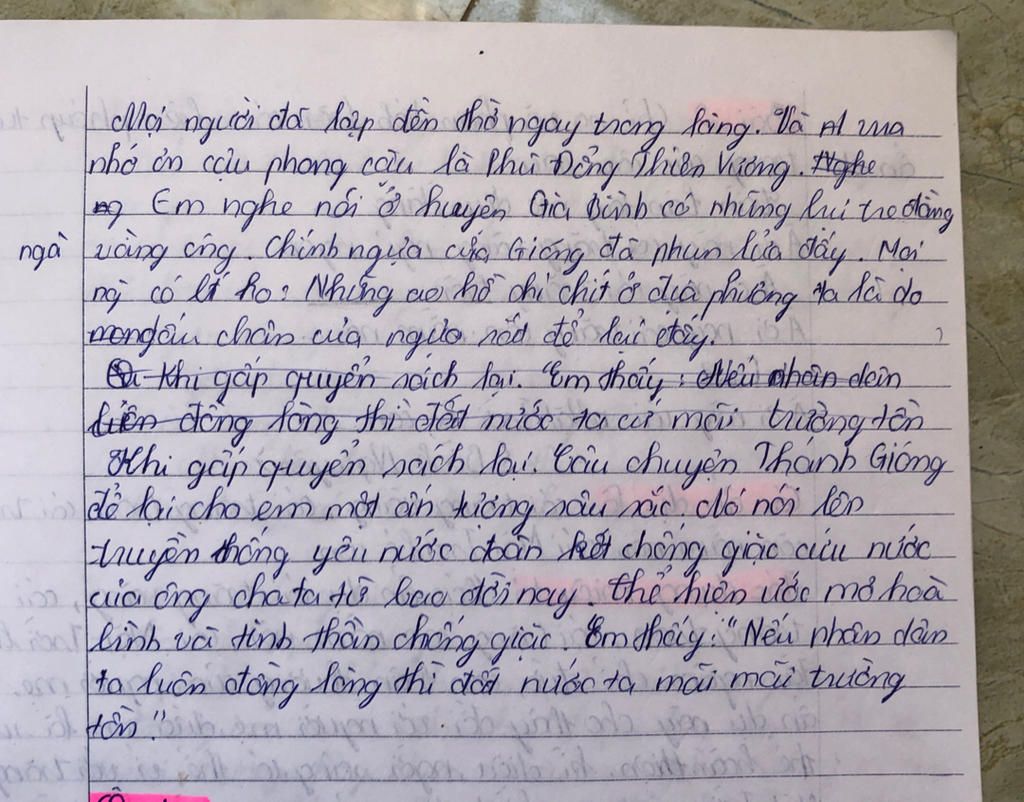 Mọi người đã lập đền thờ ngay trong làng. Và vua
nhớ ơn cậu phong cậu là Phù Đổng Thiên Vương. Nghe
ng Em nghe nói ở huyện Gia Bình có những bụi tre đằng
ngà vàng óng. Chính ngựa của Gióng đã phun lửa đấy. Mọi
ng có kể họ: Những ao hồ chi chít ở địa phương ta là do
dấu chân của ngựa sắt để lại đấy.
Khi gấp quyển sách lại. Em thấy: Nếu nhân dân
liên đồng lòng thì đất nước ta cứ mãi trường tồn
Khi gấp quyển sách lại. Câu chuyện Thánh Gióng
để lại cho em một ấn tượng sâu sắc. Nó nói lên
truyền thống yêu nước đoàn kết chống giặc cứu nước
của ông cha ta từ bao đời nay. Thể hiện ước mơ hoà
bình và tinh thần chống giặc. Em thấy: "Nếu nhân dân
ta luôn đồng lòng thì đất nước ta mãi mãi trường
tồn."